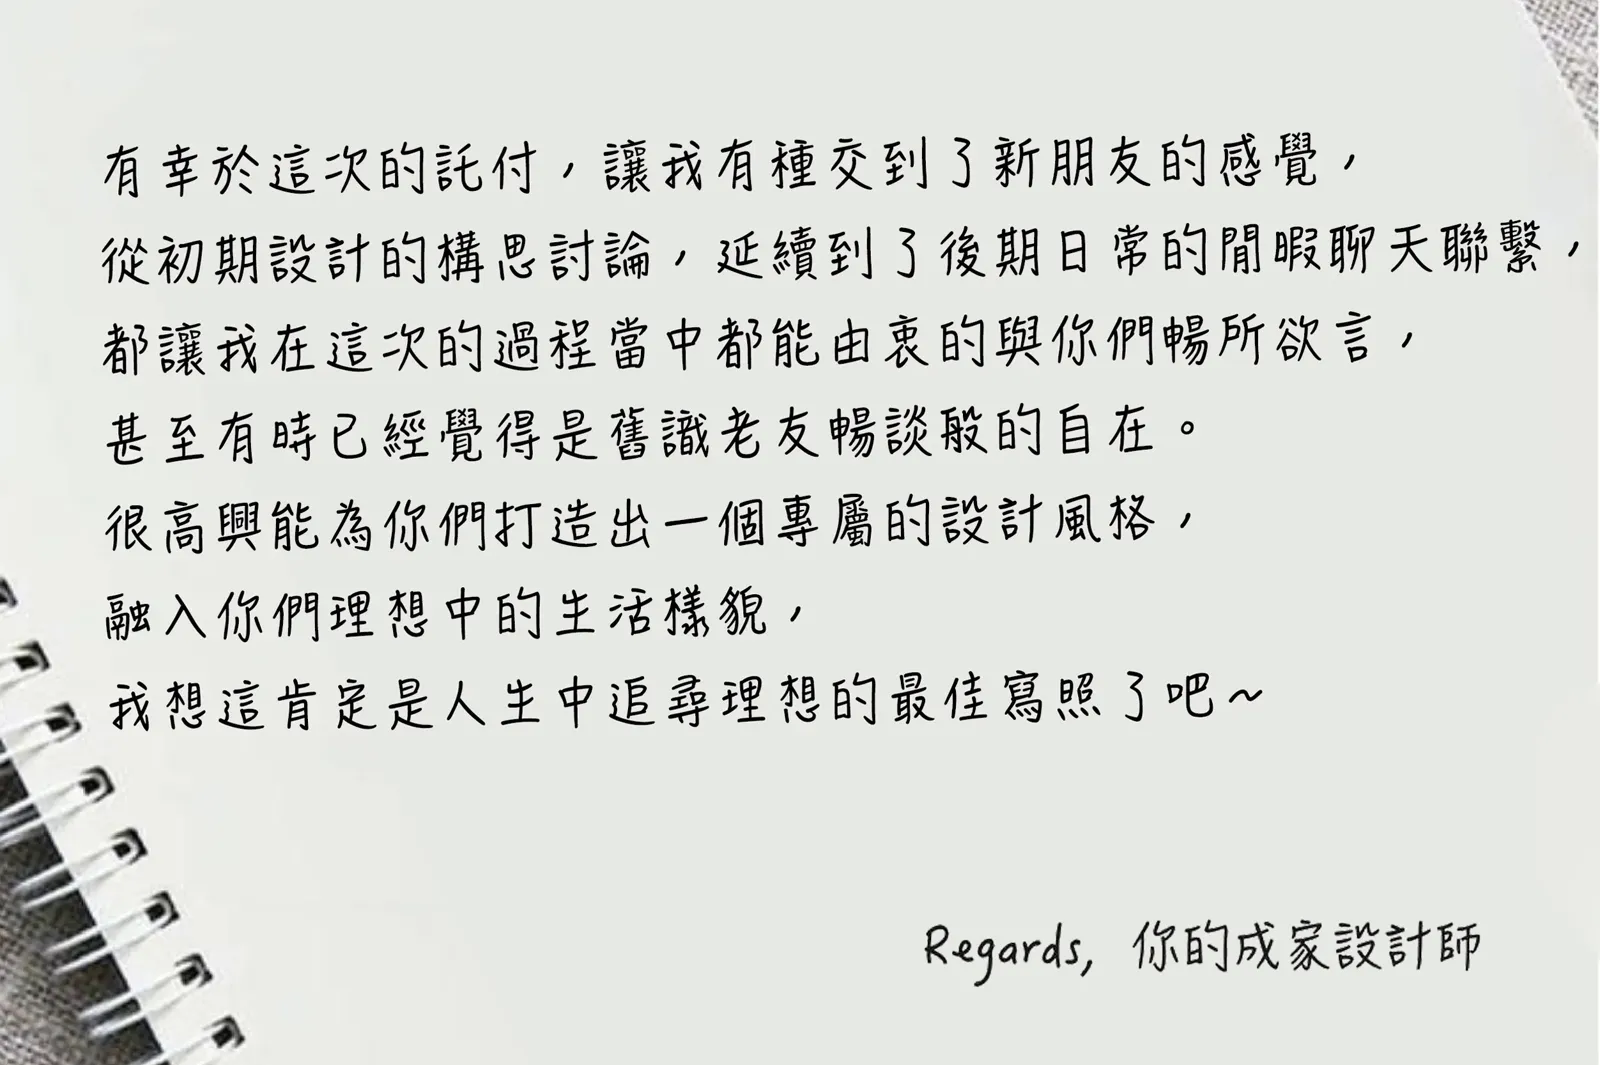 有幸於這次的託付，讓我有種交到了新朋友的感覺，
從初期設計的構思討論，延續到了後期日常的閒暇聊天聯繫，
都讓我在這次的過程當中都能由衷的與你們暢所欲言，
甚至有時已經覺得是舊識老友暢談般的自在。
很高興能為你們打造出一個專屬的設計風格，
融入你們理想中的生活樣貌，
我想這肯定是人生中追尋理想的最佳寫照了吧～
Regards, 你的成家設計師